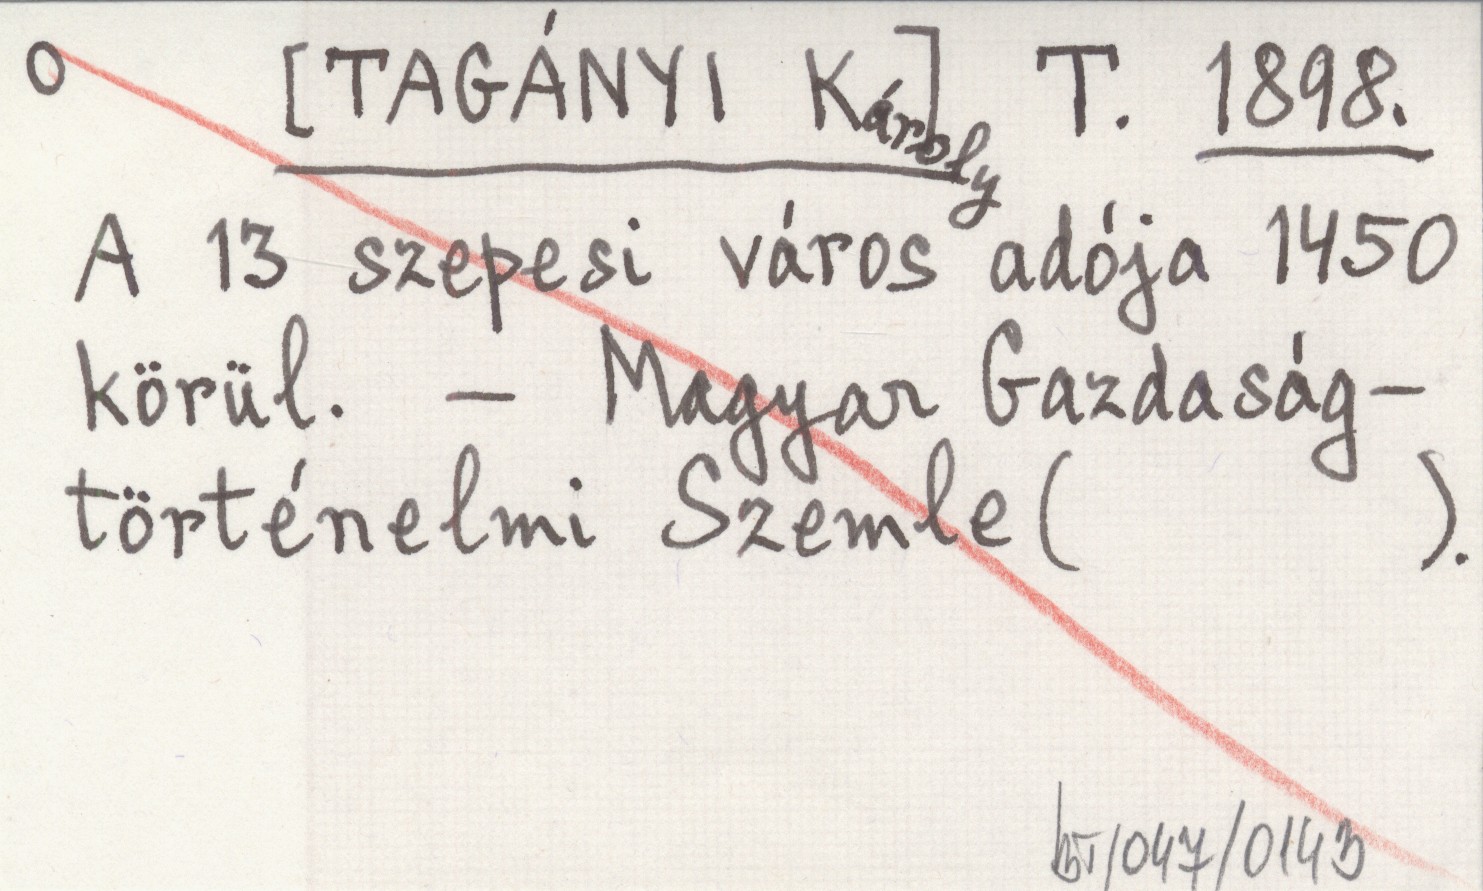 O [TAGÁNYI Károly] T. 1898.
A 13 szepesi város adója 1450
körül. – Magyar Gazdaság-
történelmi Szemle ( ).
BT/047/0143